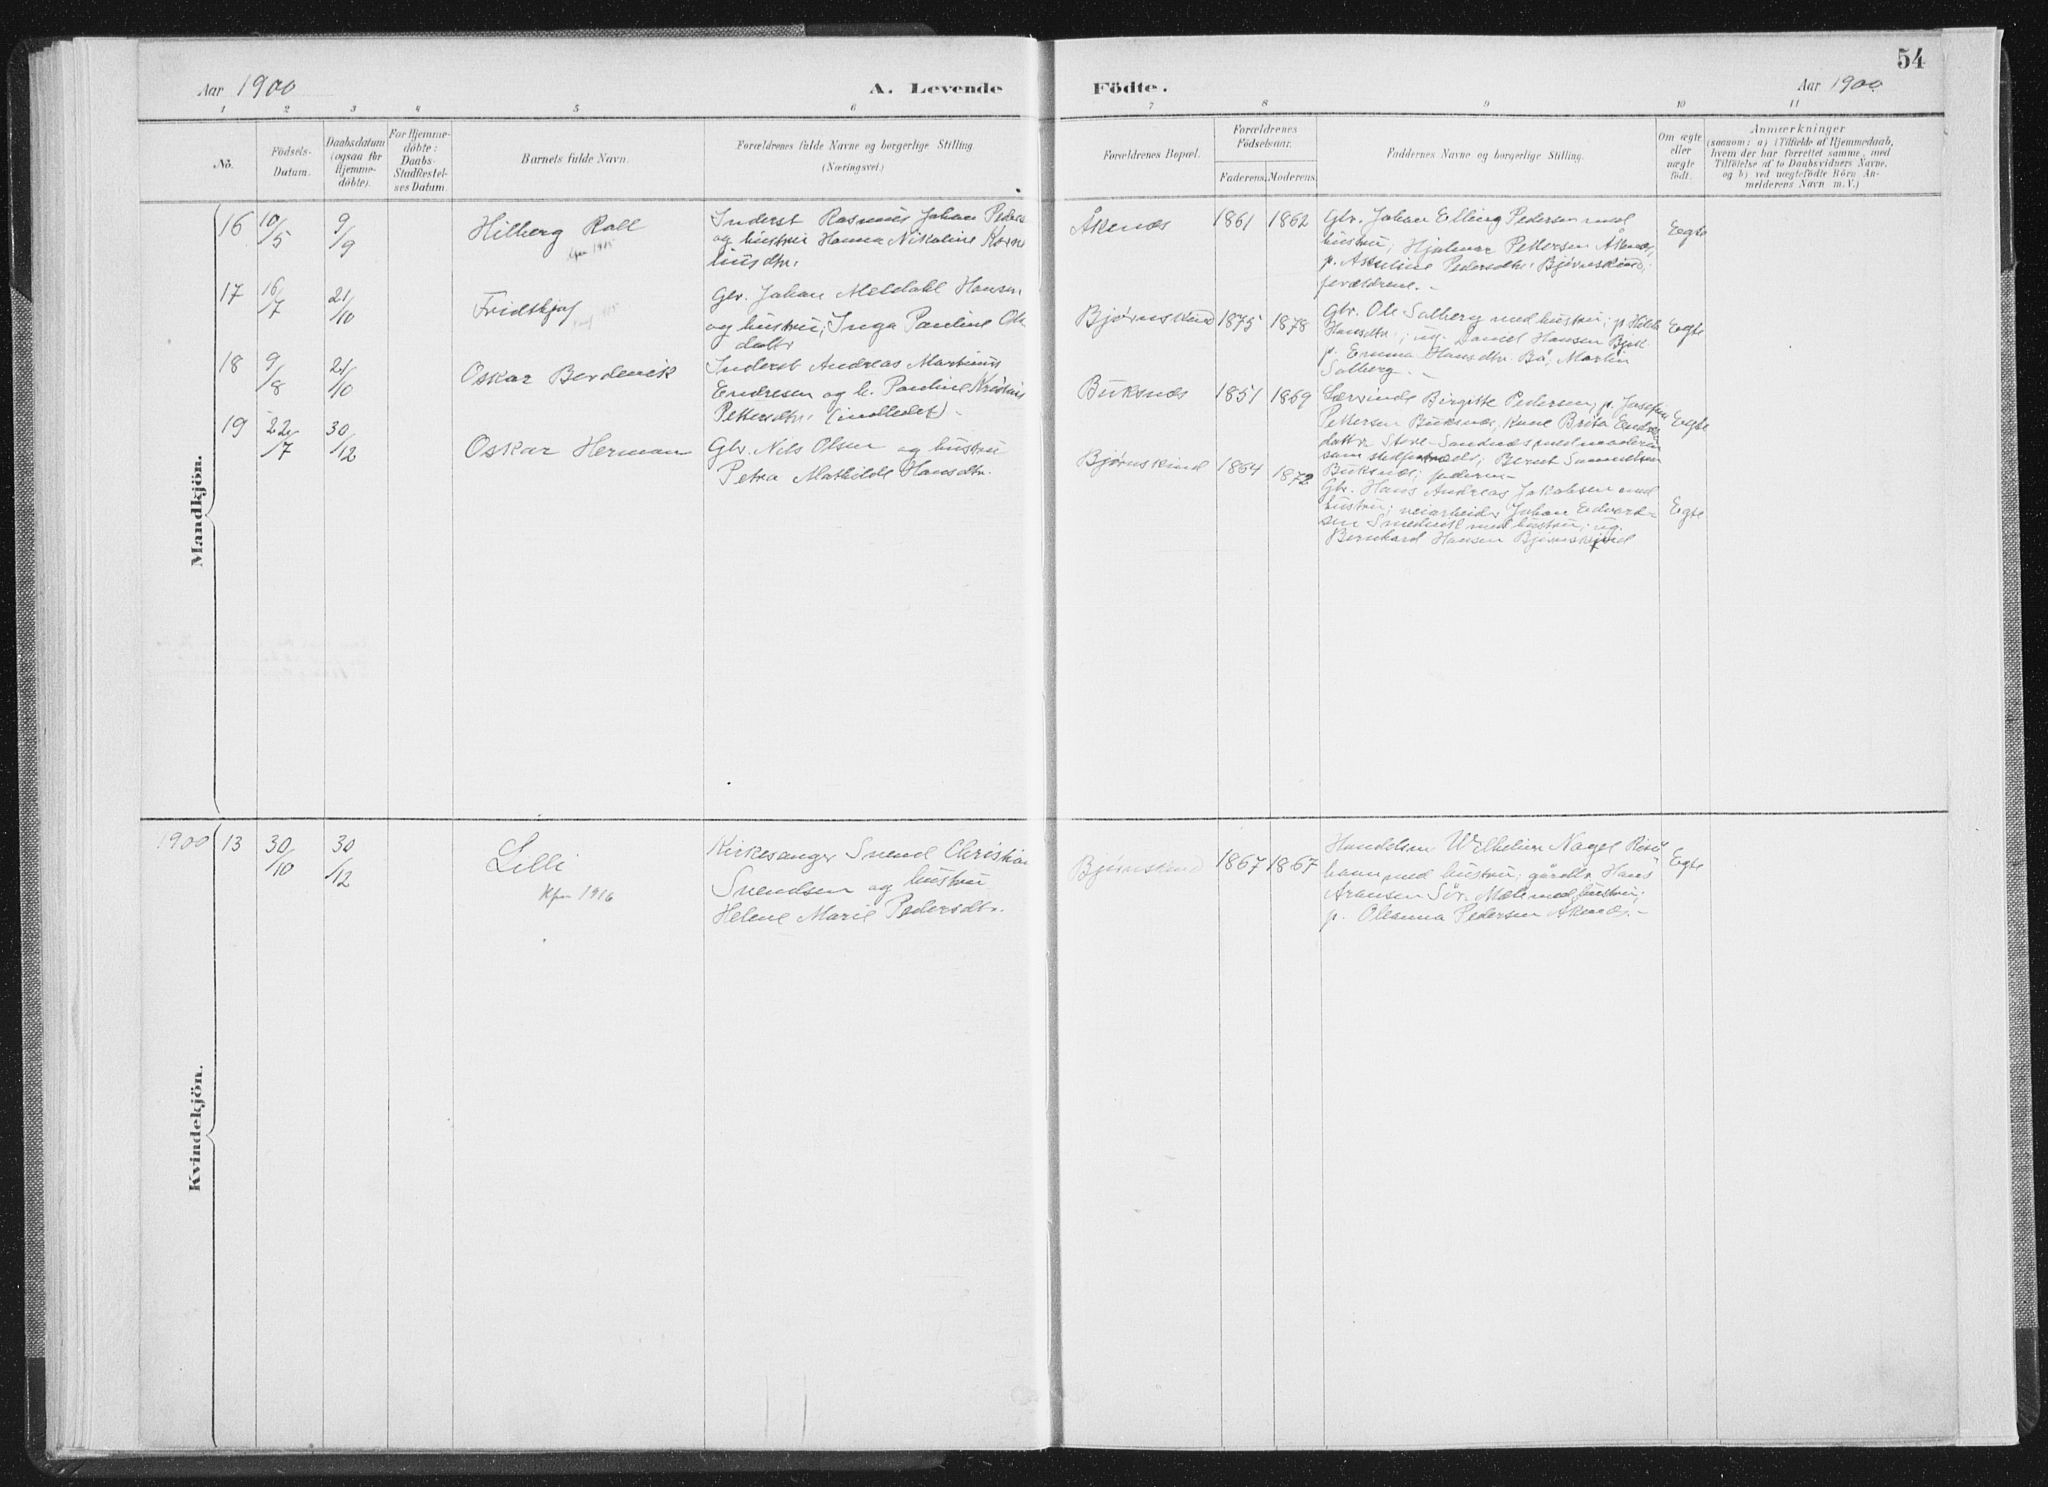 54
Aar 1900
A. Levende
Födte.
Aar 1900
1 2 3 4 5 6 7 8 9 10 11
Nö.
Födsels-
Datum.
Daabsdatum
(ogsaa for
Hjemme-
döbte).
For Hjemme-
döbte:
Daabs-
Stadfæstel-
ses Datum.
Barnets fulde Navn.
Forældrenes fulde Navne og borgerlige Stilling.
(Næringsvei.)
Forældrenes Bopæl.
Forældrenes
Födselsaar.
Faderens.
Moderens.
Faddernes Navne og borgerlige Stilling.
Om ægte
eller
uægte
födt.
Anmærkninger
(saasom: a) i Tilfælde af Hjemmedaab,
hvem der har forrettet samme, med
Tilföielse af to Daabsvidners Navne,
og b) ved uægtefödte Börn An-
melderens Navn m. V.)
Mandkjön.
16 10/5 9/9
Hilberg Roll
Kfm 1915
Inderst Rasmus Johan Peders
og hustru Hanna Nikoline Korne
liusdtr.
Åknæs
1861 1862
Gbr. Johan Elling Pedersen med
hustru; Hjalmar Pettersen Åknæs,
p. Asseline Pedersdtr. Bjørnskind;
forældrene.-
Egte
17 16/7 21/10
Fridthjof
Gbr. Johan Meldahl Hansen
og hustru; Inga Pauline Ols
dattr
Bjørnskind
1875 1878
Gbr. Ole Solberg med hustru; p. Hilda
Hansdtr.; ug. Daniel Hansen
p. Emma Hansdtr. Bø; Martin
Solberg.-
Egte
18 9/8 21/10
Oskar Berdenik
Inderst Andreas Martinus
Endresen og h. Pauline Kristine
Pettersdtr. (indledet)-
Buksnæs
1851 1869
Birgitte Pedersen, p. Josefine
Pettersen Buksnæs, Kone Brita Endres
dattr Store-Sandnæs med moderen
som; Bernt Samuelsen
Buksnæs; faderen-
Egte
19 22/7 30/12
Oskar Herman
Gbr. Nils Olsen og hustru
Petra Mathilde Hansdtr.
Bjørnskind
1864 1872
Gbr. Hans Andreas Jakobsen med
hustru; veiarbeider Johan Edvard-
sen Smedvik med hustru; ug.
Bernhard Hansen Bjørnskind
Egte
Kvindekjön.
1900 13 30/10 30/12
Lilli
Kfm 1916
Kirkesanger Svend Christian
Svendsen og hustru
Helene Marie Pedersdtr.
Bjørnskind
1867 1867
Handelsm Wilhelm Nagel
havn med hustru; gårdbr Hans
Aransen Sör-Mele med hustru;
p. Oleanna Pedersen Åknæs.-
Egte